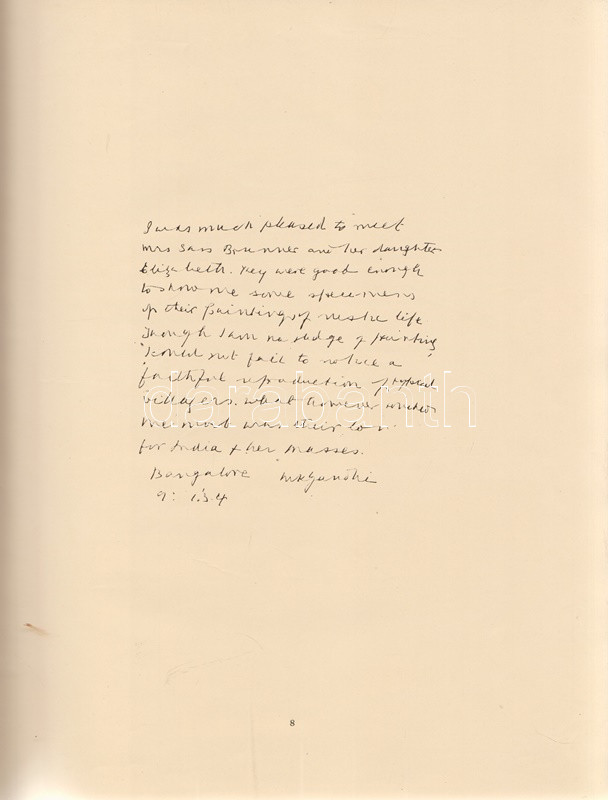 I was much pleased to meet
Mrs Sass Brunner and her daughter
Elizabeth. They were good enough
to show me some specimens
of their paintings of rustic life
Though I am no judge of painting
I could not fail to notice a
faithful reproduction of typical
villagers. What however touched
me most was their love
for India & her masses.
Bangalore MKGandhi
9: 1.34
darabanth
8